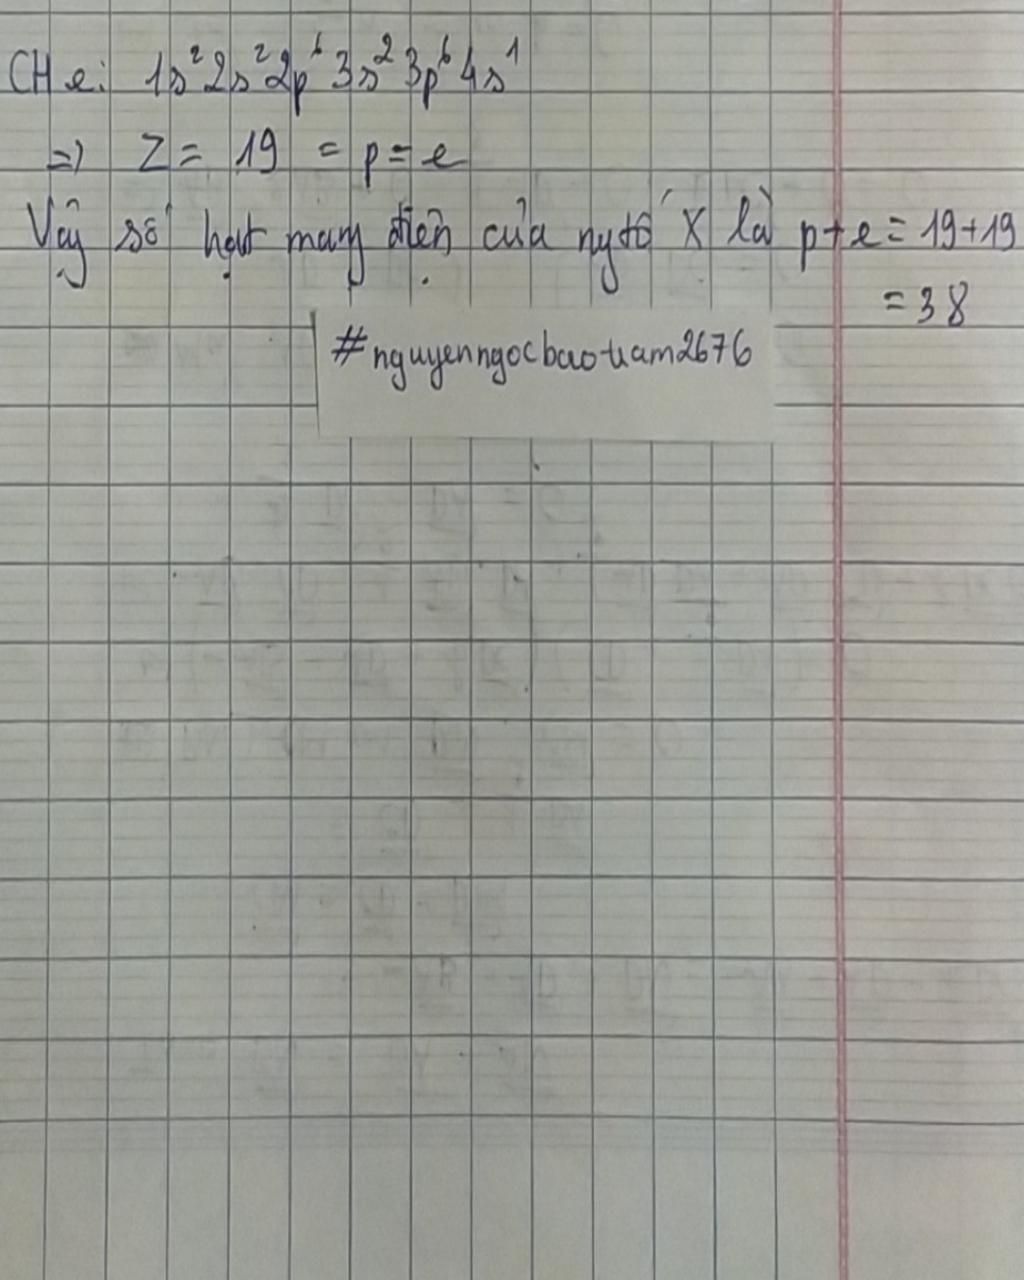 CH e: 1s²2s²2p⁶3s²3p⁶4s¹
=> Z = 19 = p = e
Vậy số hạt mang điện của ngtố X là p+e = 19+19
= 38
#nguyenngocbaotram2676